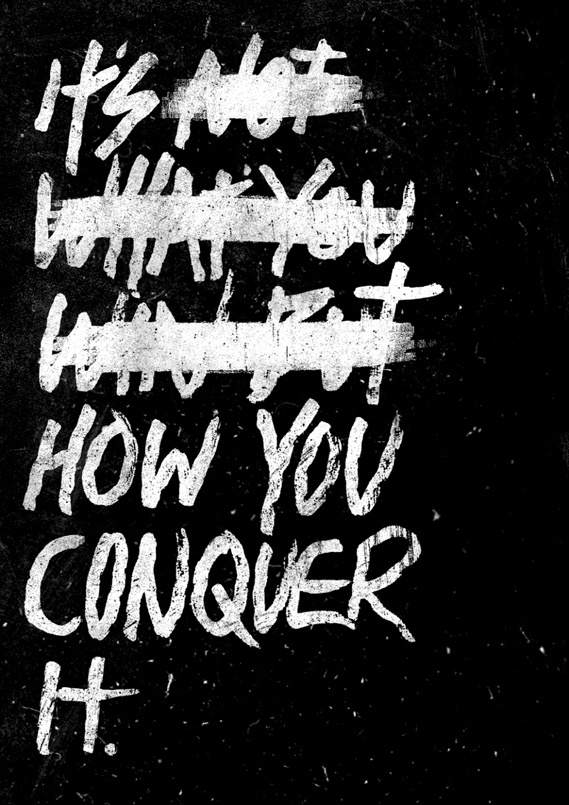 IT'S NOT
WHAT YOU
WIN, BUT
HOW YOU
CONQUER
IT.